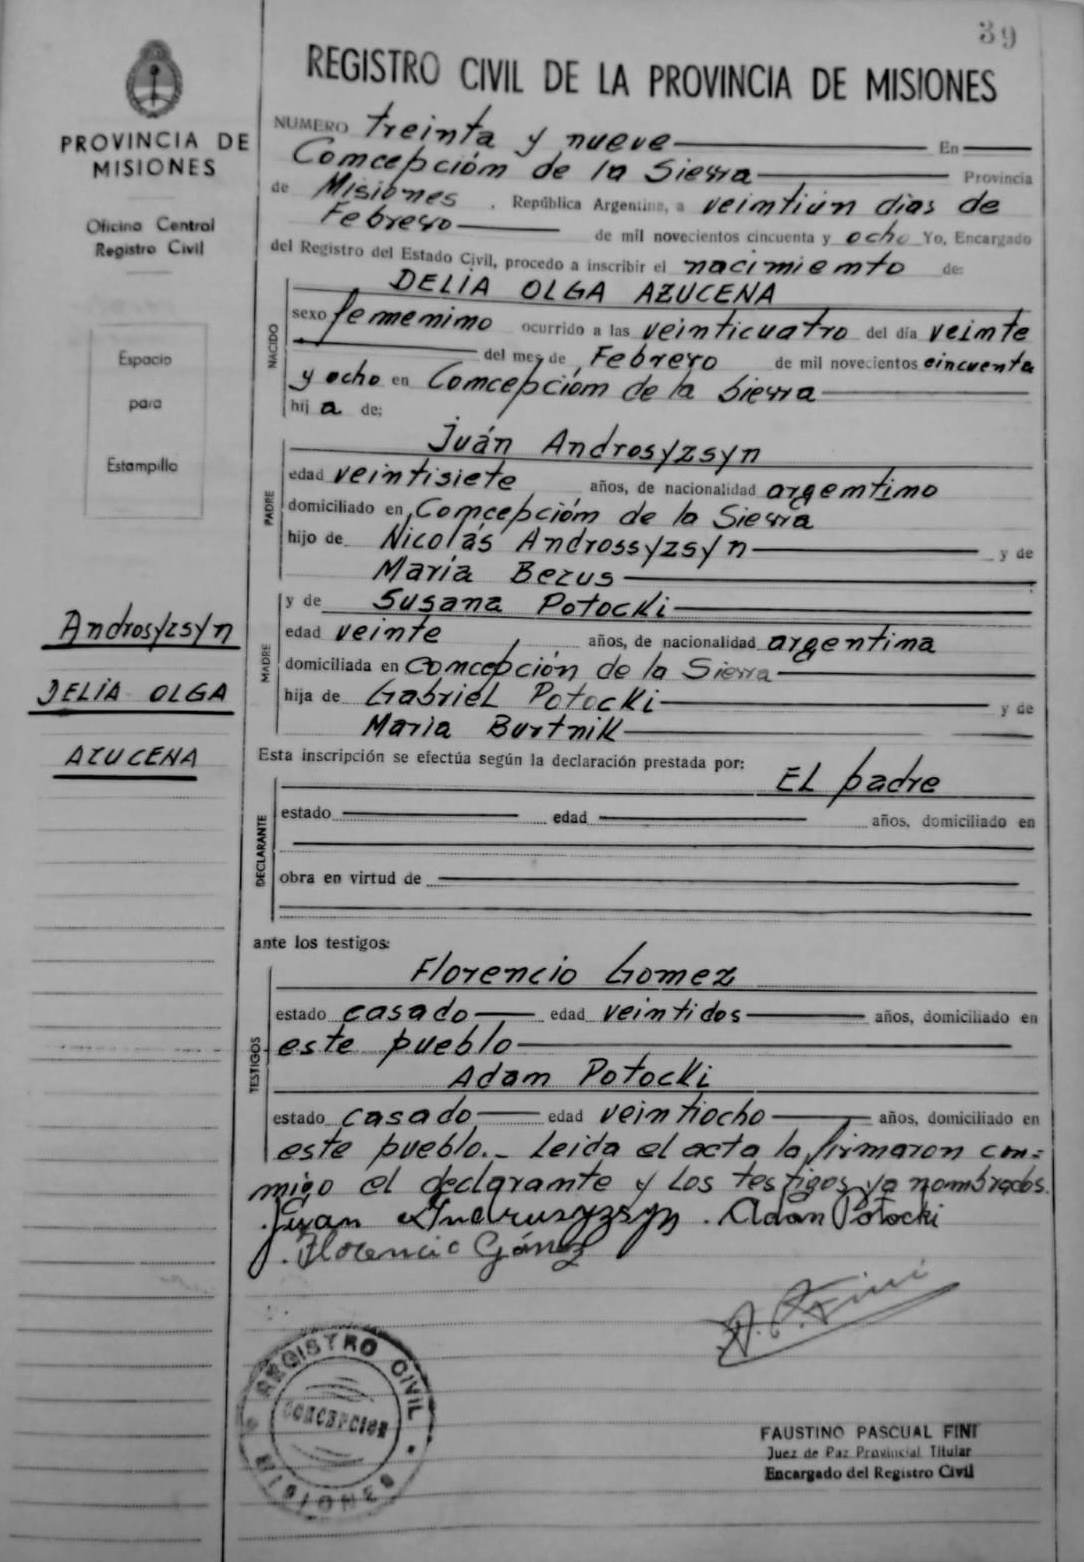 39
REGISTRO CIVIL DE LA PROVINCIA DE MISIONES
PROVINCIA DE
MISIONES
Oficina Central
Registro Civil
Espacio
para
Estampilla
Androsyzsyn
DELIA OLGA
AZUCENA
NUMERO treinta y nueve En
Comcepción de la Sierra Provincia
de Misiones . República Argentina, a veimtiún dias de
Febrero de mil novecientos cincuenta y ocho Yo, Encargado
del Registro del Estado Civil, procedo a inscribir el nacimiemto de:
NACIDO
DELIA OLGA AZUCENA
sexo femmemimo ocurrido a las veinticuatro del día veimte
del mes de Febrero de mil novecientos cincuenta
y ocho en Comcepcióm de la Sierra
hij a de:
PADRE
Juán Androsyzsyn
edad veintisiete años, de nacionalidad argemtimo
domiciliado en Comcepcióm de la Sierra
hijo de Nicolás Androssyzsyn y de
María Bezus
MADRE
y de Susana Potocki
edad veinte años, de nacionalidad argentima
domiciliada en Comcepción de la Sierra
hija de Gabriel Potocki y de
Maria Burtnik
Esta inscripción se efectúa según la declaración prestada por:
DECLARANTE
El padre
estado edad años, domiciliado en
obra en virtud de
ante los testigos:
TESTIGOS
Florencio Gomez
estado casado edad veimtidos años, domiciliado en
este pueblo
Adam Potocki
estado casado edad veimtiocho años, domiciliado en
este pueblo.- Leida el acta la firmaron con=
migo el declaramte y los testigos ya nombrados.
Juan Andrusyzsyn . Adan Potocki
. Florencio Gómez
F. P. Fini
REGISTRO CIVIL
CONCEPCION
MISIONES
FAUSTINO PASCUAL FINI
Juez de Paz Provincial Titular
Encargado del Registro Civil